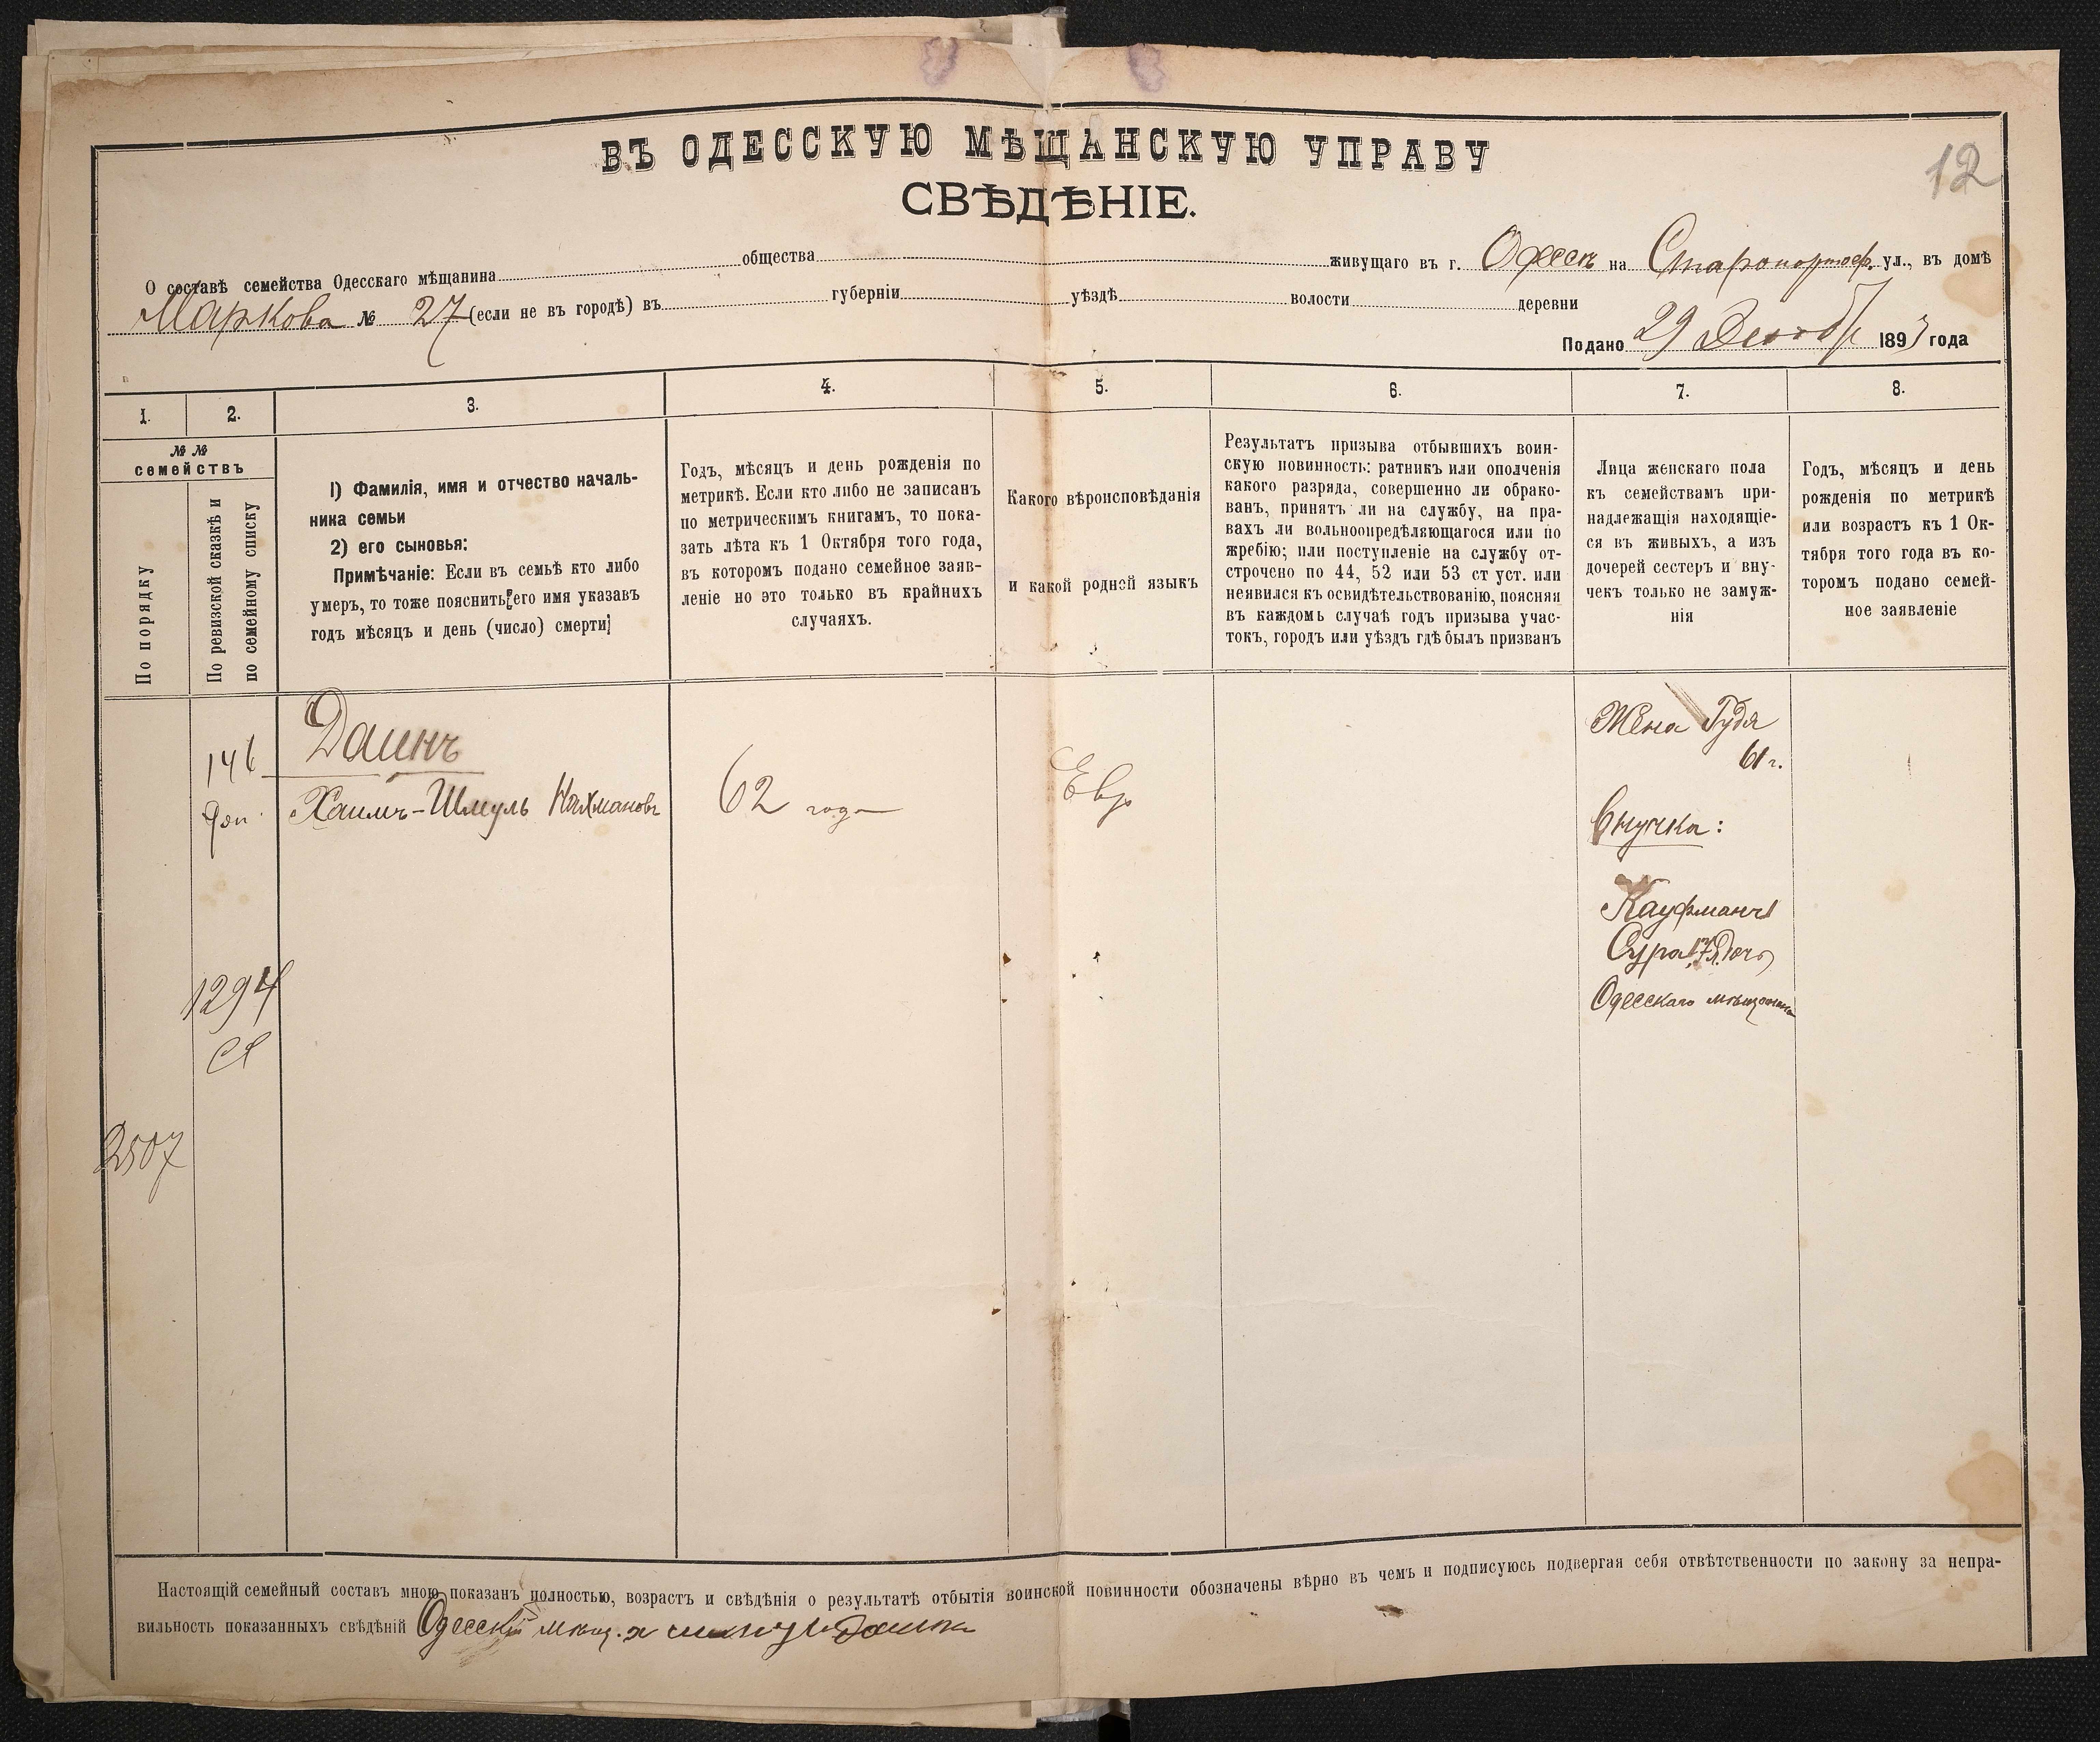 12
ВЪ ОДЕССКУЮ МѢЩАНСКУЮ УПРАВУ
СВѢДѢНІЕ.
О составѣ семейства Одесскаго мѣщанина общества живущаго въ г. Одессѣ на Старопортоф. ул., въ домѣ
Маркова № 27 (если не въ городѣ) въ губерніи уѣздѣ волости деревни
Подано 29 Декабр 1893 года
1. 2. 3. 4. 5. 6. 7. 8.
№ №
семействъ
По порядку
По ревизской сказкѣ и
по семейному списку
1) Фамилія, имя и отчество началь-
ника семьи
2) его сыновья:
Примѣчаніе: Если въ семьѣ кто либо
умеръ, то тоже пояснить его имя указавъ
годъ мѣсяцъ и день (число) смерти;
Годъ, мѣсяцъ и день рожденія по
метрикѣ. Если кто либо не записанъ
по метрическимъ книгамъ, то пока-
зать лѣта къ 1 Октября того года,
въ которомъ подано семейное заяв-
леніе но это только въ крайнихъ
случаяхъ.
Какого вѣроисповѣданія
и какой родной языкъ
Результатъ призыва отбывшихъ воин-
скую повинность: ратникъ или ополченія
какого разряда, совершенно ли обрако-
ванъ, принятъ ли на службу, на пра-
вахъ ли вольноопредѣляющагося или по
жребію; или поступленіе на службу от-
строчено по 44, 52 или 53 ст уст. или
неявился къ освидѣтельствованію, поясняя
въ каждомъ случаѣ годъ призыва учас-
токъ, городъ или уѣздъ гдѣ былъ призванъ
Лица женскаго пола
къ семействамъ при-
надлежащія находящіе-
ся въ живыхъ, а изъ
дочерей сестеръ и вну-
чекъ только не замуж-
нія
Годъ, мѣсяцъ и день
рожденія по метрикѣ
или возрастъ къ 1 Ок-
тября того года въ ко-
торомъ подано семей-
ное заявленіе
146
доп.
Даинъ
Хаимъ-Шмуль Нахмановъ
62 года
Евр
Жена Гудя
61 г.
Внучка:
Кауфманъ
Сура 17 л. дочь
Одесскаго мѣщанина
1294
2507
Настоящій семейный составъ мною показанъ полностью, возрастъ и свѣдѣнія о результатѣ отбытія воинской повинности обозначены вѣрно въ чемъ и подписуюсь подвергая себя отвѣтственности по закону за непра-
вильность показанныхъ свѣдѣній Одесскій мѣщ.